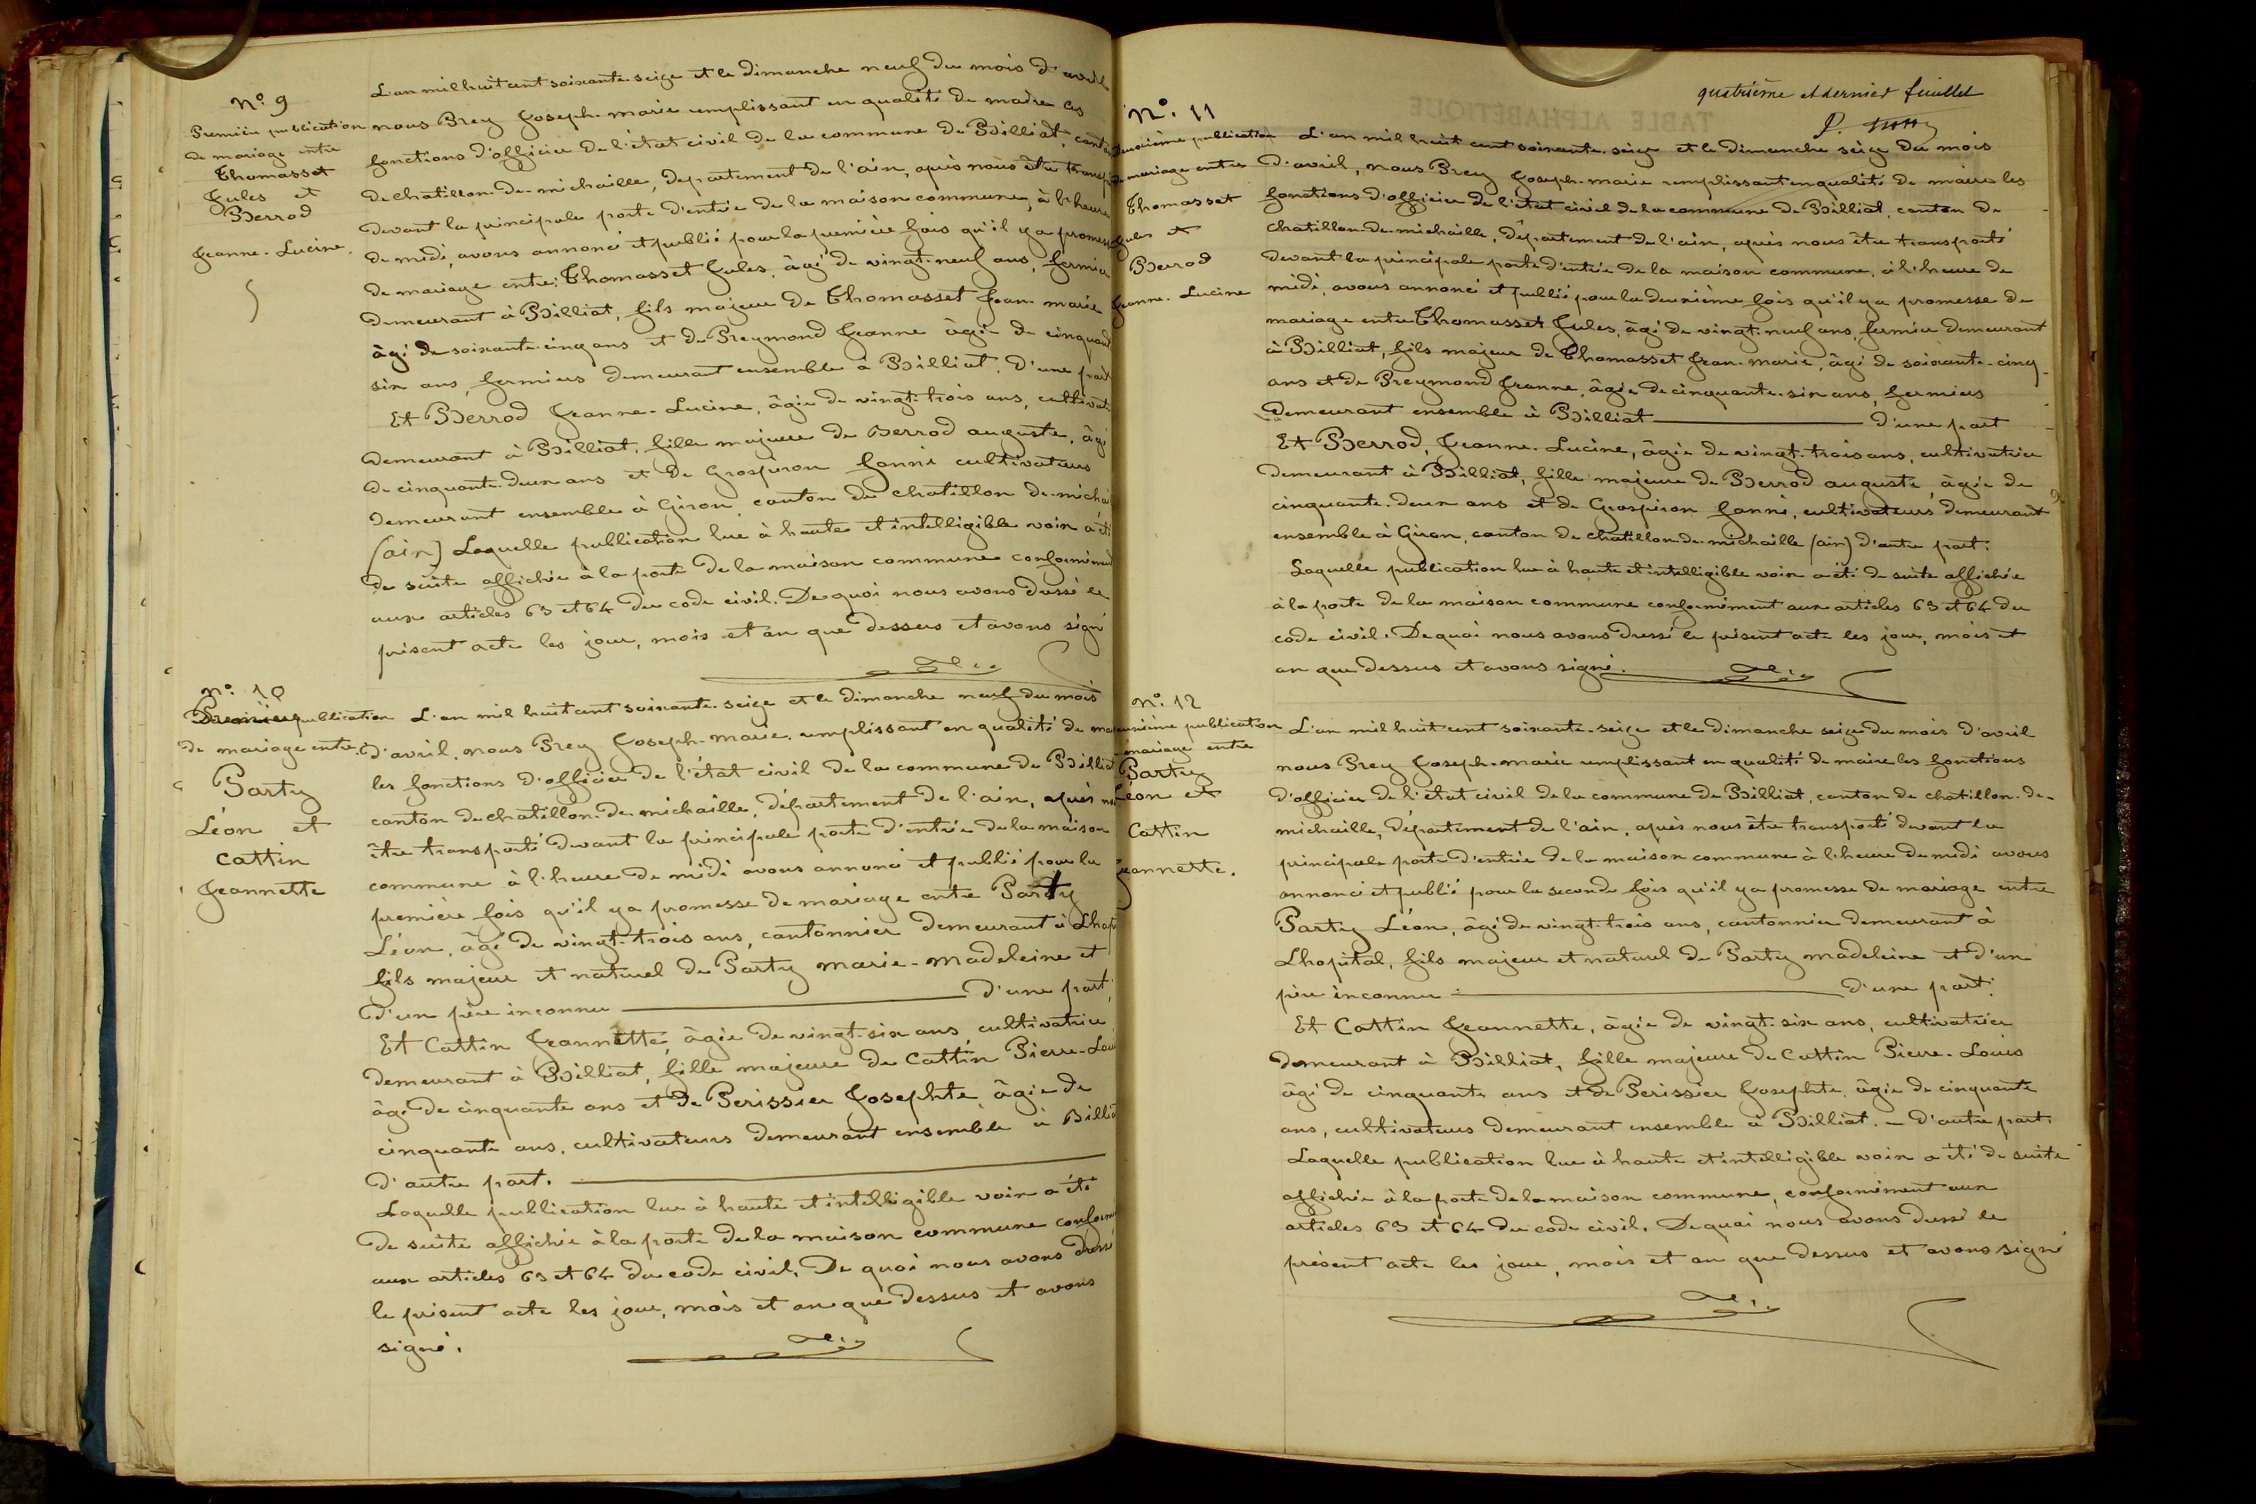 N° 9
Première publication
de mariage entre
Thomasset
Jules et
Berrod
Jeanne-Lucine.
L'an mil huit cent soixante-seize et le dimanche neuf du mois d'avril
nous Brey Joseph-marie remplissant en qualité de maire les
fonctions d'officier de l'état civil de la commune de Billiat, canton
de chatillon-de-michaille, département de l'ain, après nous être transp
devant la principale porte d'entrée de la maison commune, à l'heure
de midi, avons annoncé et publié pour la première fois qu'il y a promesse
de mariage entre: Thomasset Jules, âgé de vingt-neuf ans, fermier
demeurant à Billiat, fils majeur de Thomasset Jean-marie
âgé de soixante-cinq ans et de Breymond Jeanne âgée de cinquante
six ans, fermiers demeurant ensemble à Billiat, d'une part
Et Berrod Jeanne-Lucine, âgée de vingt-trois ans, cultivat
demeurant à Billiat, fille majeure de Berrod auguste, âgé
de cinquante-deux ans et de Grospiron fanni cultivateurs
demeurant ensemble à Giron, canton de chatillon-de-micha
(ain) Laquelle publication lue à haute et intelligible voix a été
de suite affichée à la porte de la maison commune conformément
aux articles 63 et 64 du code civil. De quoi nous avons dressé le
présent acte les jour, mois et an que dessus et avons signé
n°. 10
Première publication
de mariage entre
Party
Léon et
Cattin
Jeannette
L'an mil huit cent soixante-seize et le dimanche neuf du mois
d'avril, nous Brey Joseph-marie, remplissant en qualité de ma
les fonctions d'officier de l'état civil de la commune de Billiat
canton de chatillon-de-michaille, département de l'ain, après n
être transporté devant la principale porte d'entrée de la maison
commune à l'heure de midi avons annoncé et publié pour la
première fois qu'il y a promesse de mariage entre Party
Léon, âgé de vingt-trois ans, cantonnier demeurant à Lhop
fils majeur et naturel de Party marie-madeleine et
d'un père inconnu d'une part,
Et Cattin Jeannette, âgée de vingt-six ans cultivatrice
demeurant à Billiat, fille majeure de Cattin Pierre-Lou
âgé de cinquante ans et de Perissier Josephte, âgée de
cinquante ans, cultivateurs demeurant ensemble à Billia
d'autre part.
Laquelle publication lue à haute et intelligible voix a été
de suite affichée à la porte de la maison commune conform
aux articles 63 et 64 du code civil. De quoi nous avons dressé
le présent acte les jour, mois et an que dessus et avons
signé.
quatrième et dernier feuillet
TABLE ALPHABÉTIQUE
N°. 11
deuxième publication
de mariage entre
Thomasset
Jules et
Berrod
Jeanne-Lucine
L'an mil huit cent soixante-seize et le dimanche seize du mois
d'avril, nous Brey Joseph-marie remplissant en qualité de maire les
fonctions d'officier de l'état civil de la commune de Billiat, canton de
chatillon-de-michaille, département de l'ain, après nous être transporté
devant la principale porte d'entrée de la maison commune, à l'heure de
midi, avons annoncé et publié pour la deuxième fois qu'il y a promesse de
mariage entre Thomasset Jules, âgé de vingt-neuf ans, fermier demeurant
à Billiat, fils majeur de Thomasset Jean-marie, âgé de soixante-cinq
ans et de Breymond Jeanne, âgée de cinquante-six ans, fermiers
demeurant ensemble à Billiat d'une part
Et Berrod, Jeanne-Lucine, âgée de vingt-trois ans, cultivatrice
demeurant à Billiat, fille majeure de Berrod auguste, âgée de
cinquante-deux ans et de Grospiron fanni, cultivateurs demeurant
ensemble à Giron, canton de chatillon-de-michaille (ain) d'autre part.
Laquelle publication lue à haute et intelligible voix a été de suite affichée
à la porte de la maison commune conformément aux articles 63 et 64 du
code civil. De quoi nous avons dressé le présent acte les jour, mois et
an que dessus et avons signé.
n°. 12
euxième publication
mariage entre
Party
Léon et
Cattin
Jeannette.
L'an mil huit cent soixante-seize et le dimanche seize du mois d'avril
nous Brey Joseph-marie remplissant en qualité de maire les fonctions
d'officier de l'état civil de la commune de Billiat, canton de chatillon-de-
michaille, département de l'ain, après nous être transporté devant la
principale porte d'entrée de la maison commune à l'heure de midi avons
annoncé et publié pour la seconde fois qu'il y a promesse de mariage entre
Party Léon, âgé de vingt-trois ans, cantonnier demeurant à
Lhopital, fils majeur et naturel de Party madeleine et d'un
père inconnu d'une part.
Et Cattin Jeannette, âgée de vingt-six ans, cultivatrice
demeurant à Billiat, fille majeure de Cattin Pierre-Louis
âgé de cinquante ans et de Perissier Josephte, âgée de cinquante
ans, cultivateurs demeurant ensemble à Billiat. - d'autre part.
Laquelle publication lue à haute et intelligible voix a été de suite
affichée à la porte de la maison commune, conformément aux
articles 63 et 64 du code civil. De quoi nous avons dressé le
présent acte les jour, mois et an que dessus et avons signé